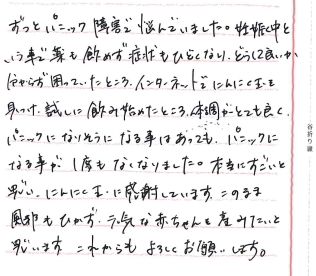 ずっとパニック障害で悩んでいました。妊娠中と
いう事で薬も飲めず症状もひどくなり、どうして良いか
分からず困っていたところ、インターネットでにんにく玉を
見つけ、試しに飲み始めたところ、体調がとても良く、
パニックになりそうになる事はあっても、パニックに
なる事が1度もなくなりました。本当にすごいと
思い、にんにく玉に感謝しています。このまま
風邪もひかず、元気な赤ちゃんを産みたいと
思います。これからもよろしくお願いします。
谷折り線